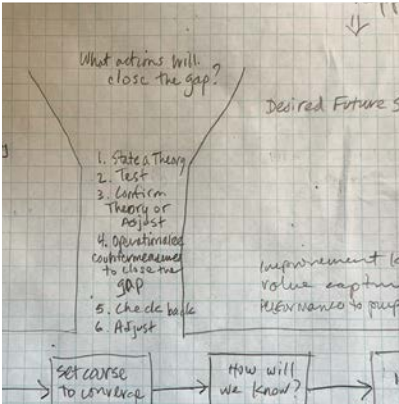 What actions will
close the gap?
Desired Future S
1. State a Theory
2. Test
3. Confirm
Theory or
Adjust
4. Operationalize
countermeasures
to close the
gap
5. Check back
6. Adjust
improvement
value
performance to
set course
to converge
How will
we know?